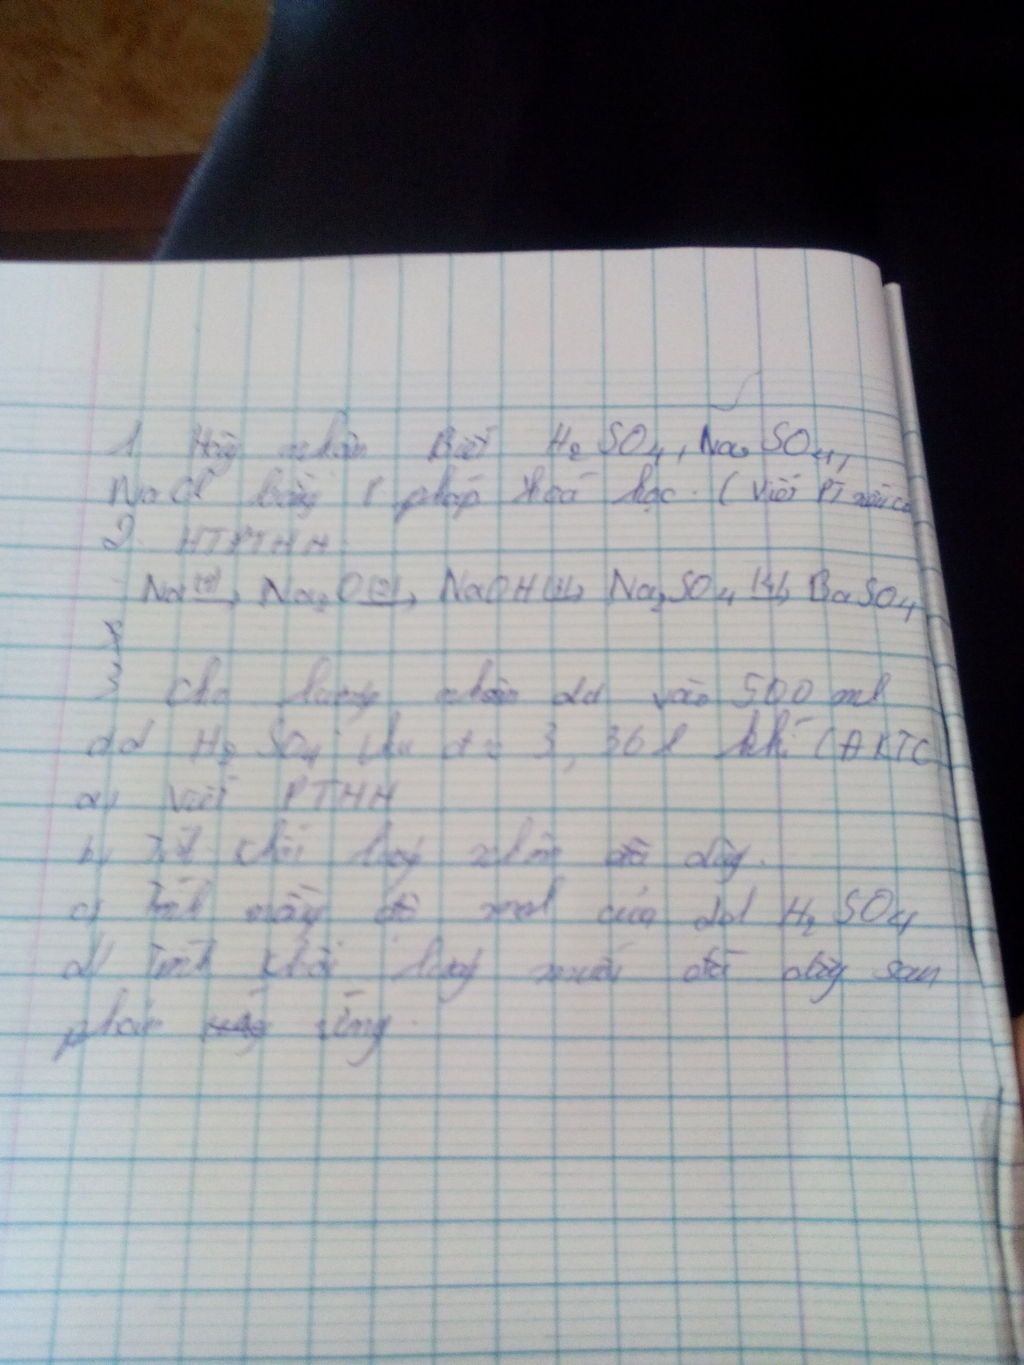 1 Hãy nhận Biết H2SO4, Na2SO4,
NaCl bằng P pháp hoá học. (Viết PT nếu có
2. HTPTHH
Na (1)→ Na2O (2)→ NaOH (3)→ Na2SO4 (4)→ BaSO4
3 Cho lượng nhôm dd vào 500 ml
dd H2SO4 thu đc 3,36 l khí (ĐKTC
a) Viết PTHH
b) Tính khối lượng nhôm đã dùng.
c) Tính nồng độ mol của dd H2SO4
d) Tính khối lượng muối sau
phản ứng.